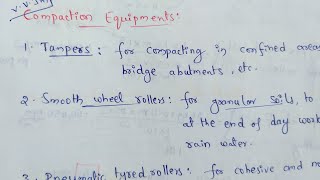 V.V.
Compaction Equipments:
1. Tampers: for compacting in confined areas
bridge abutments, etc.
2. Smooth wheel rollers: for granular soils, to
at the end of day work
rain water.
3. Pneumatic tyred rollers: for cohesive and